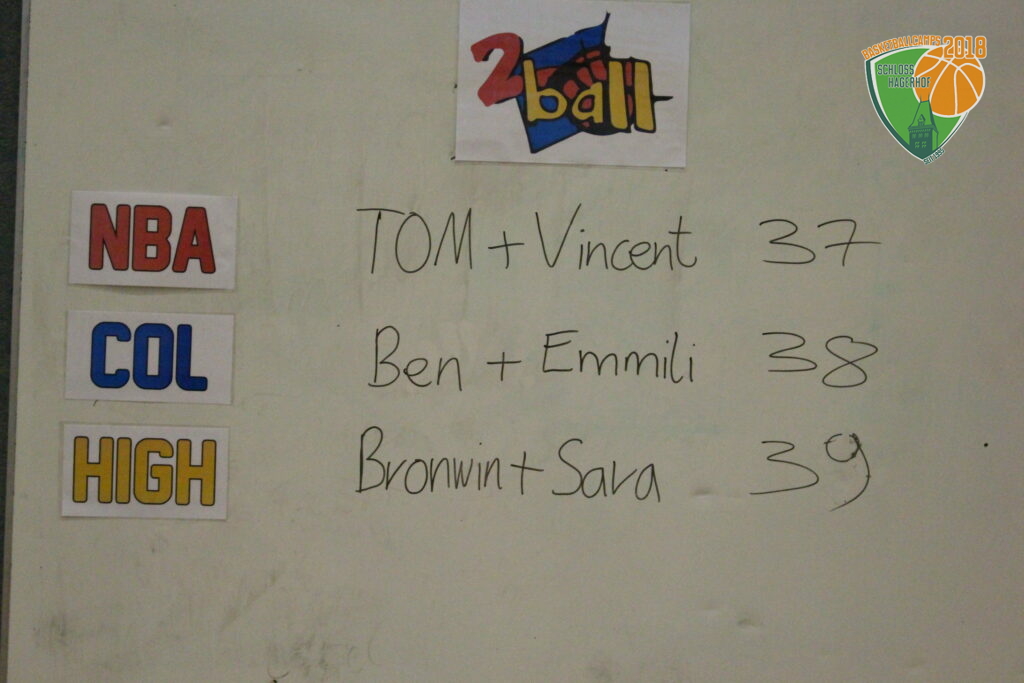 2ball
BASKETBALLCAMPS 2018
SCHLOSS
HAGERHOF
NBA TOM + Vincent 37
COL Ben + Emmili 38
HIGH Bronwin + Sara 39